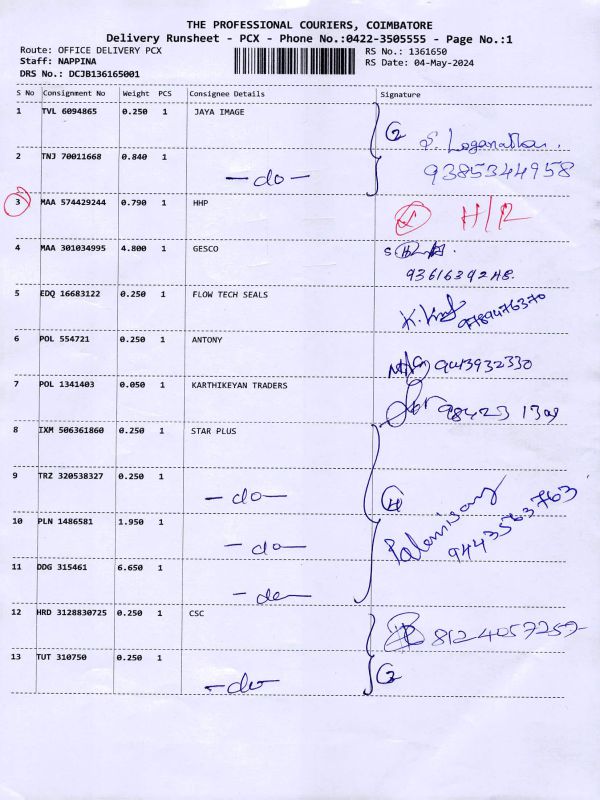 THE PROFESSIONAL COURIERS, COIMBATORE
Delivery Runsheet - PCX - Phone No.:0422-3505555 - Page No.:1
Route: OFFICE DELIVERY PCX
RS No.: 1361650
Staff: NAPPINA
RS Date: 04-May-2024
DRS No.: DCJB136165001
S No Consignment No Weight PCS Consignee Details Signature
1 TVL 6094865 0.250 1 JAYA IMAGE
2 S. Loganathan.
2 TNJ 70011668 0.840 1 -do- 9385344958
3 MAA 574429244 0.790 1 HHP H/R
4 MAA 301034995 4.800 1 GESCO
5 EDQ 16683122 0.250 1 FLOW TECH SEALS 9789476370
6 POL 554721 0.250 1 ANTONY 9443932330
7 POL 1341403 0.050 1 KARTHIKEYAN TRADERS
8 IXM 506361860 0.250 1 STAR PLUS
9 TRZ 320538327 0.250 1 -do- 4
10 PLN 1486581 1.950 1 -do- 9443563763
11 DDG 315461 6.650 1 -do-
12 HRD 3128830725 0.250 1 CSC 8124057252
13 TUT 310750 0.250 1 -do- 2